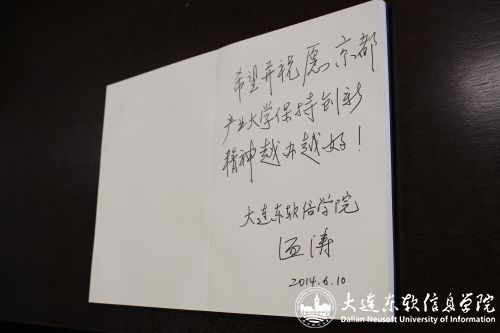 希望并祝愿京都
产业大学保持创新
精神越办越好！
大连东软信息学院
温涛
2014.6.10
大连东软信息学院
Dalian Neusoft University of Information